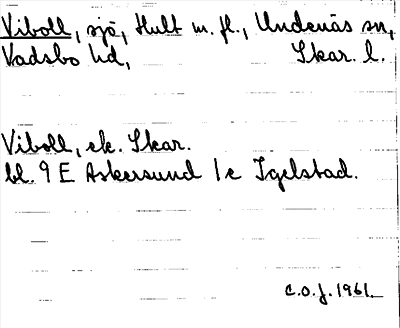 Viboll, sjö, Hult m. fl., Undenäs sn,
Vadsbo hd, Skar. l.
Viboll, ek. Skar.
bl. 9 E Askersund 1 e Igelstad.
C.O.J. 1961.